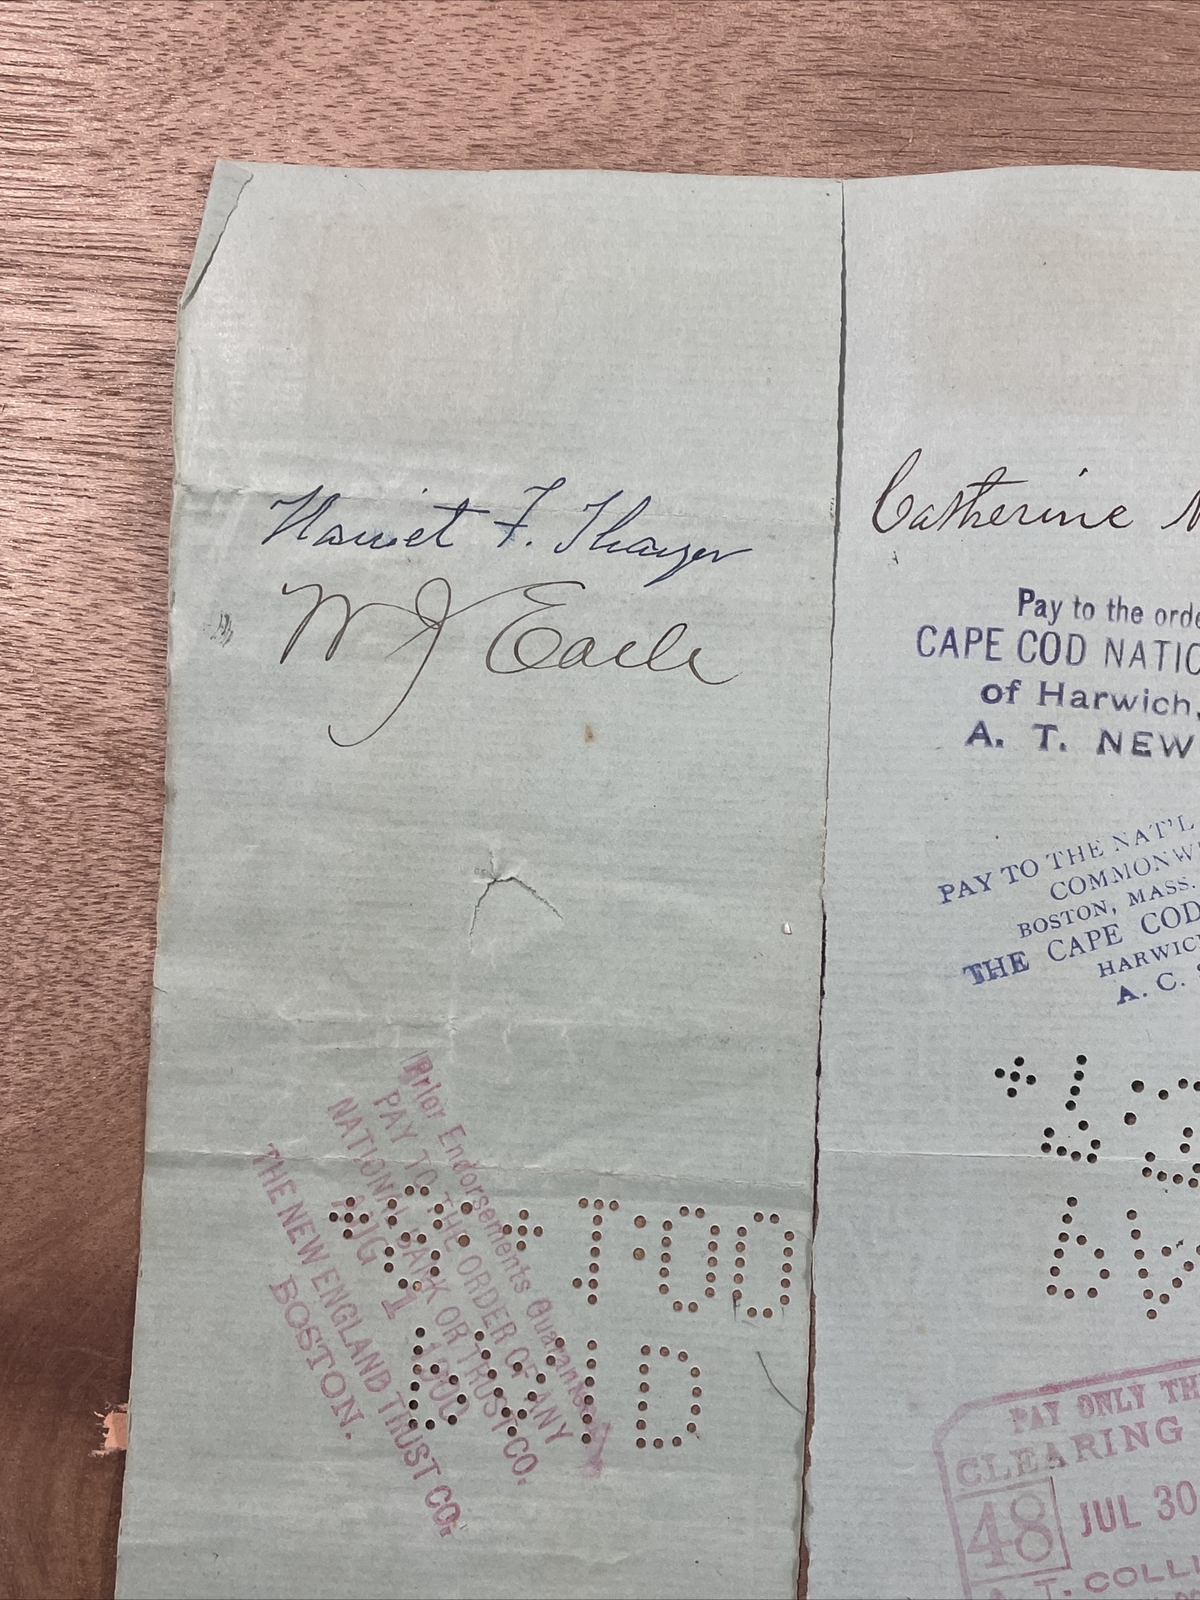 Harriet F. Thayer
W J Earle
Prior Endorsements Guaranteed
PAY TO THE ORDER OF ANY
NATIONAL BANK OR TRUST CO.
AUG 1
THE NEW ENGLAND TRUST CO.
BOSTON.
Catherine
Pay to the orde
CAPE COD NATIO
of Harwich,
A. T. NEW
PAY TO THE NAT'L
COMMONW
BOSTON, MASS.
THE CAPE COD
HARWIC
A. C.
PAY ONLY TH
CLEARING
48 JUL 30
A. T. COLLI